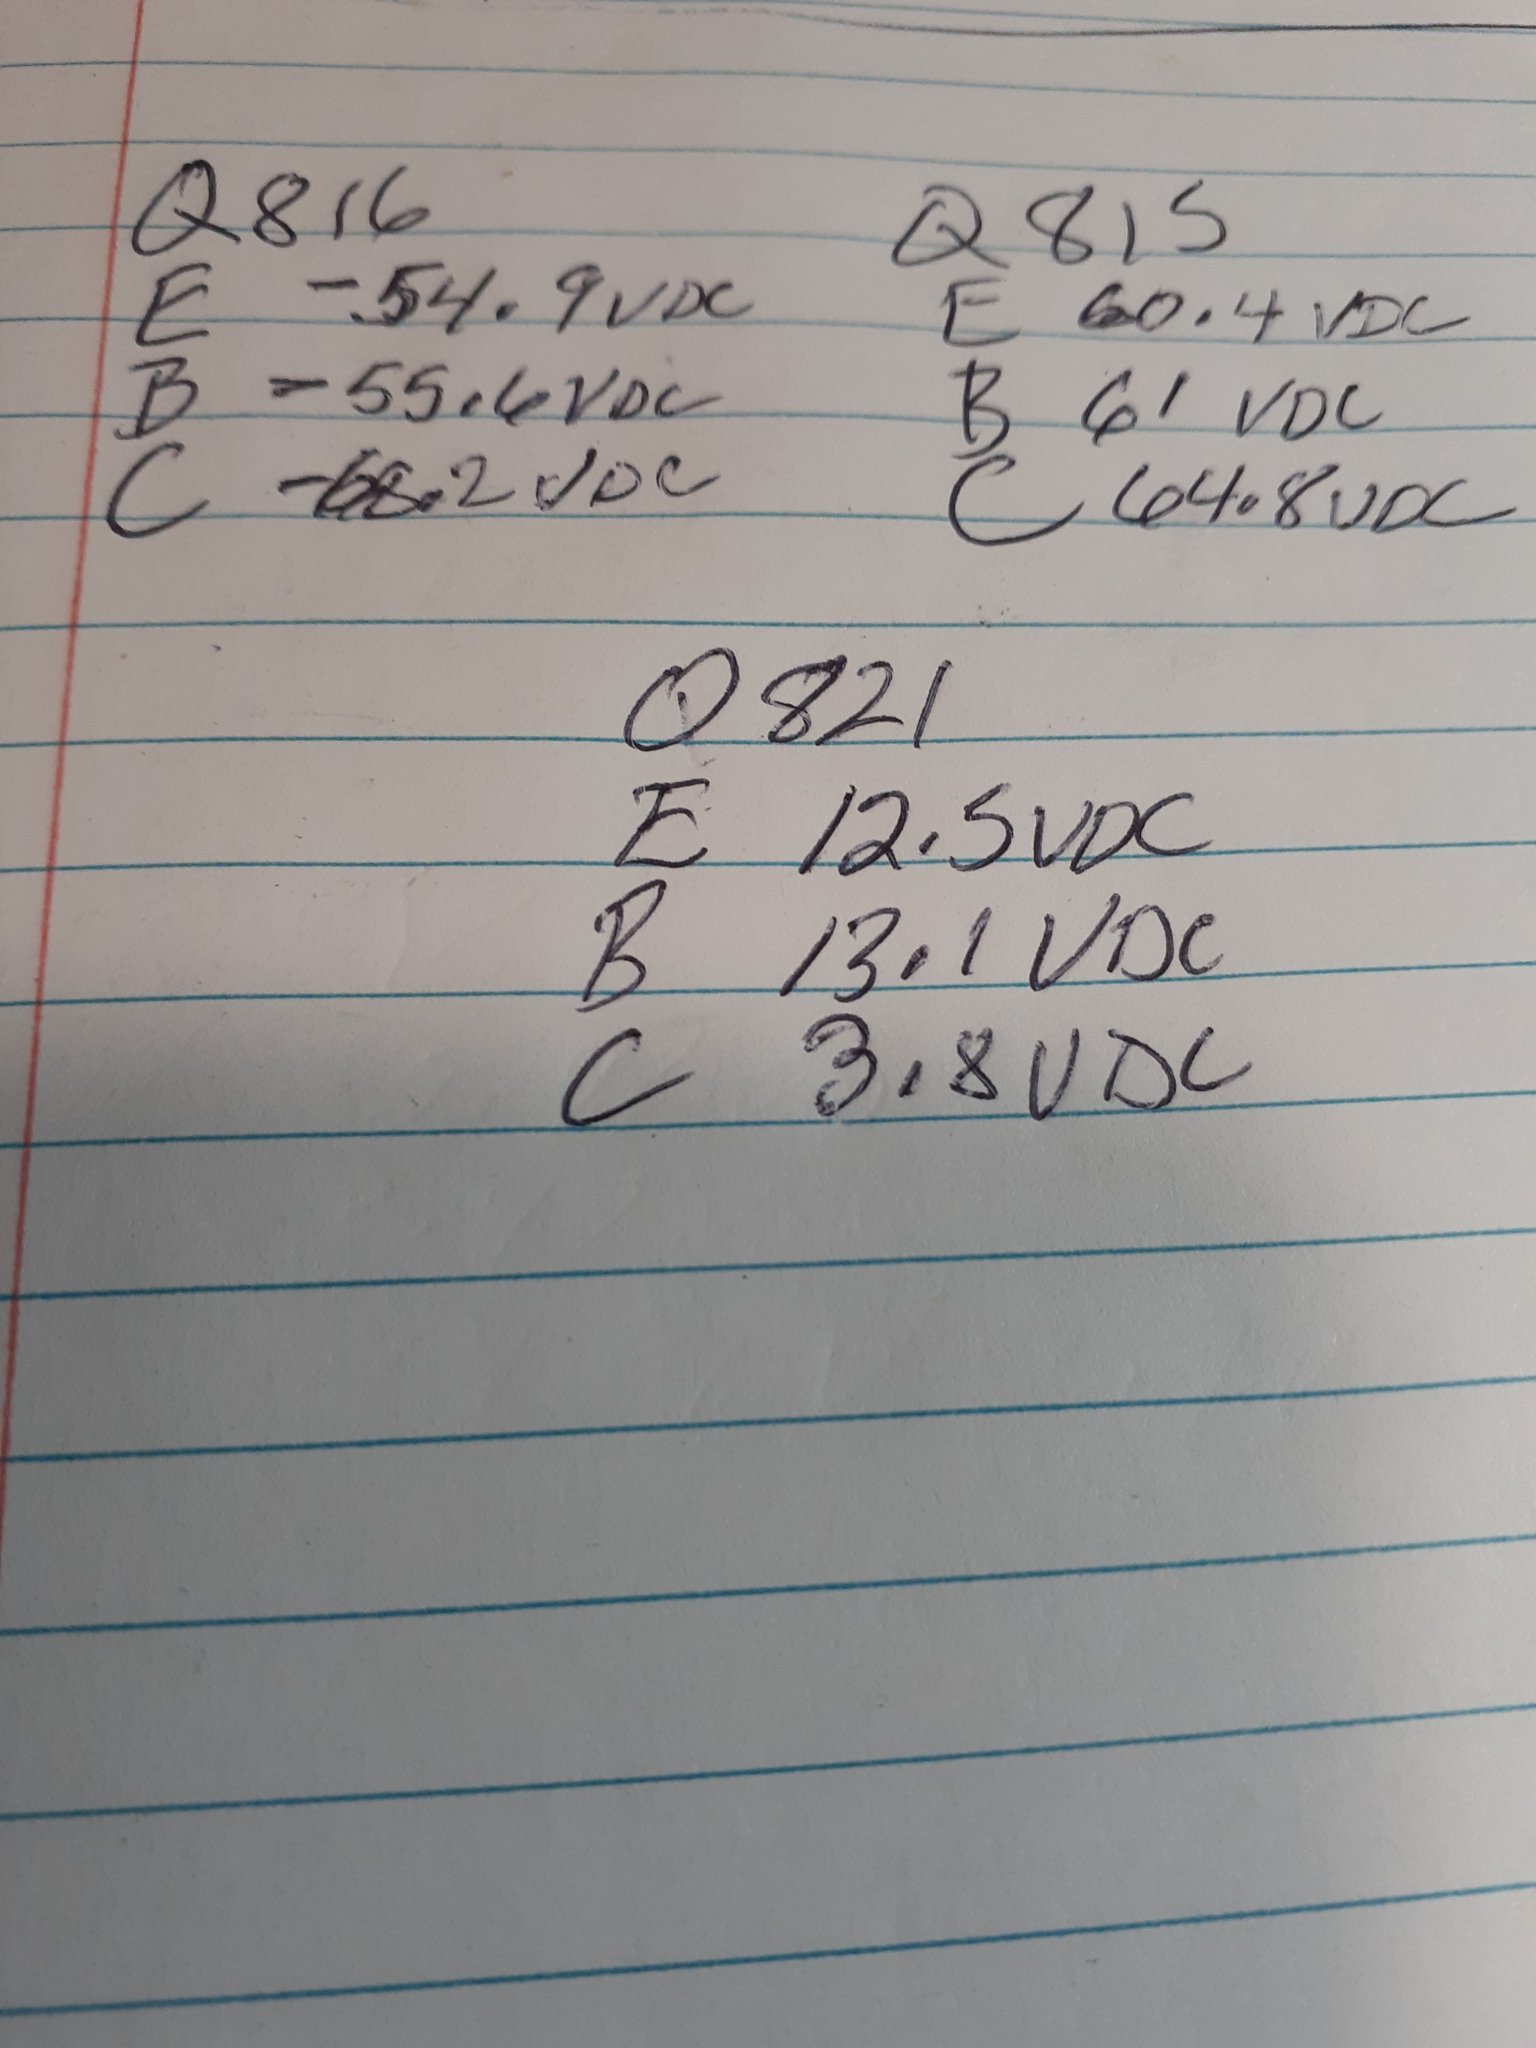 Q816
E -54.9VDC
B -55.6VDC
C -68.2VDC
Q815
E 60.4VDC
B 61 VDC
C 64.8VDC
Q821
E 12.5VDC
B 13.1VDC
C 3.8VDC